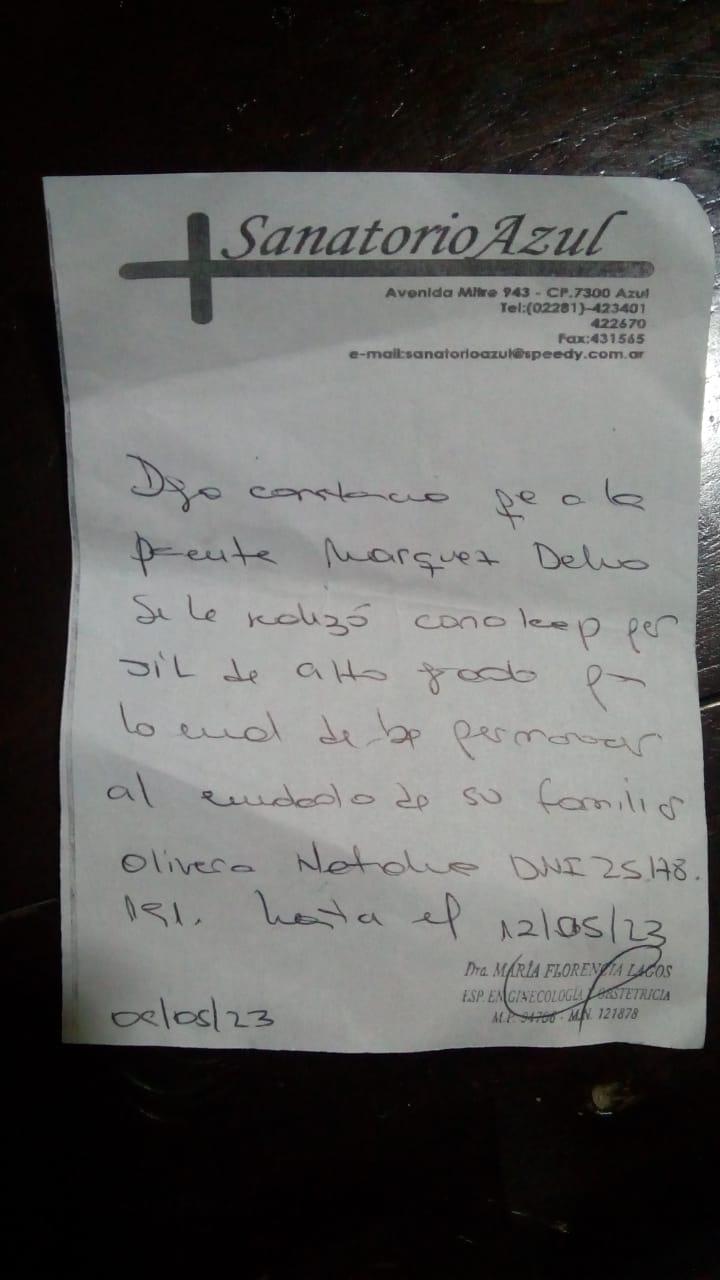 Sanatorio Azul
Avenida Mitre 943 - CP.7300 Azul
Tel:(02281)-423401
422670
Fax:431565
e-mail:sanatorioazul@speedy.com.ar
Dejo constancia que a la
paciente Marquez Delia
se le realizó cono leep por
SIL de alto grado por
lo cual debe permanecer
al cuidado de su familiar
Olivera Natalia DNI 25.178.
191. hasta el 12/05/23
Dra. MARÍA FLORENCIA LAGOS
ESP. EN GINECOLOGÍA Y OBSTETRICIA
M.P. - M.N. 121878
/05/23